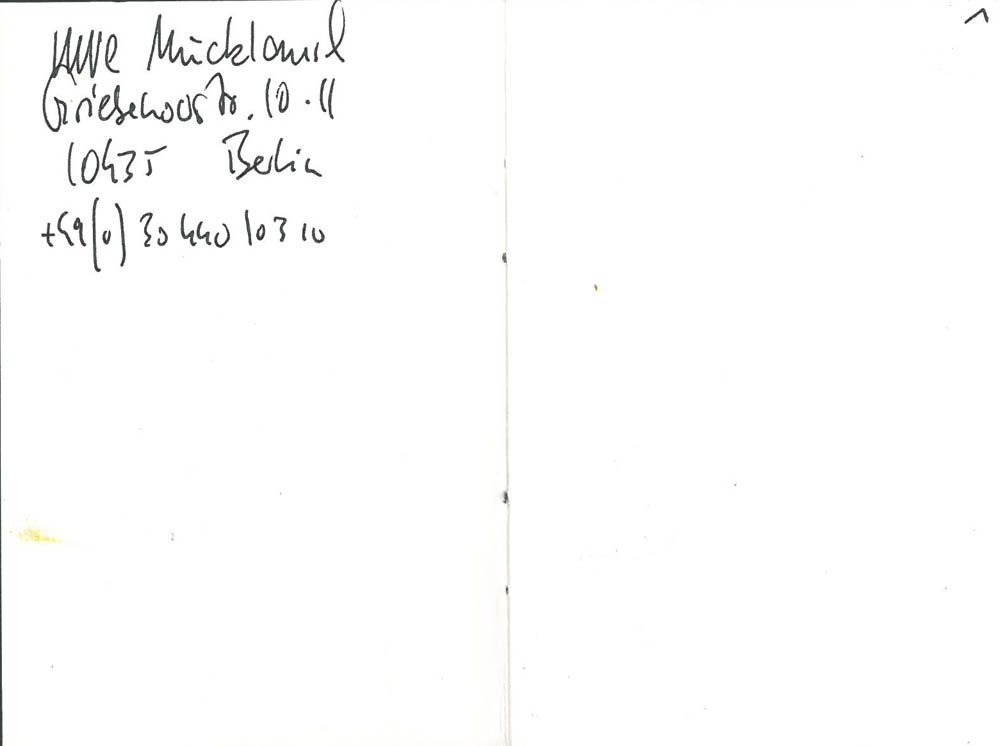 Uwe Mücklausch
Griebenowstr. 10-11
10435 Berlin
+49(0) 30 440 103 10
1